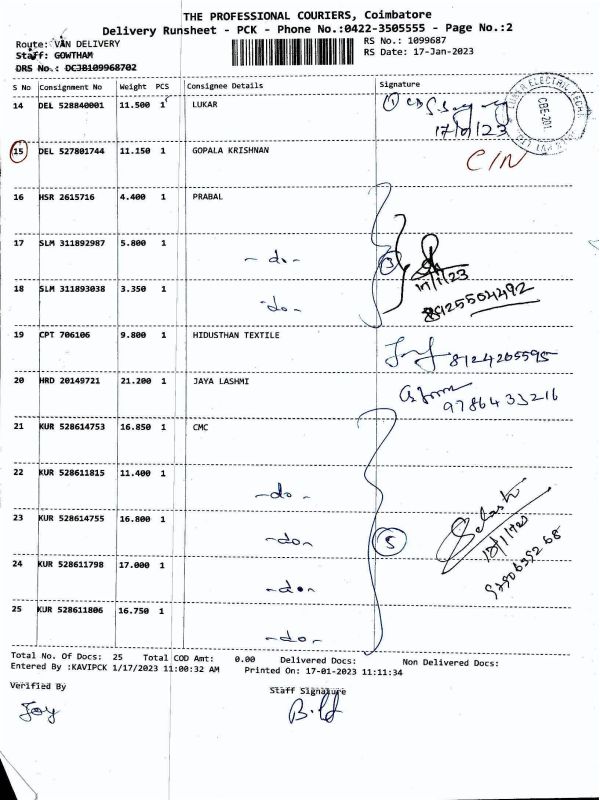 THE PROFESSIONAL COURIERS, Coimbatore
Delivery Runsheet - PCK - Phone No.:0422-3505555 - Page No.:2
Route: VAN DELIVERY RS No.: 1099687
Staff: GOWTHAM RS Date: 17-Jan-2023
DRS No.: DCJB109968702
S No Consignment No Weight PCS Consignee Details Signature
14 DEL 528840001 11.500 1 LUKAR 1
17/01/23
CBE-201
15 DEL 527801744 11.150 1 GOPALA KRISHNAN C/N
16 HSR 2615716 4.400 1 PRABAL
17 SLM 311892987 5.800 1 -do- 3
18 SLM 311893038 3.350 1 -do- 8925504492
19 CPT 706106 9.800 1 HIDUSTHAN TEXTILE 8124205595
20 HRD 20149721 21.200 1 JAYA LASHMI 9786433216
21 KUR 528614753 16.850 1 CMC
22 KUR 528611815 11.400 1 -do-
23 KUR 528614755 16.800 1 -do- 5
24 KUR 528611798 17.000 1 -do-
25 KUR 528611806 16.750 1 -do-
Total No. Of Docs: 25 Total COD Amt: 0.00 Delivered Docs: Non Delivered Docs:
Entered By :KAVIPCK 1/17/2023 11:00:32 AM Printed On: 17-01-2023 11:11:34
Verified By Staff Signature
Joy